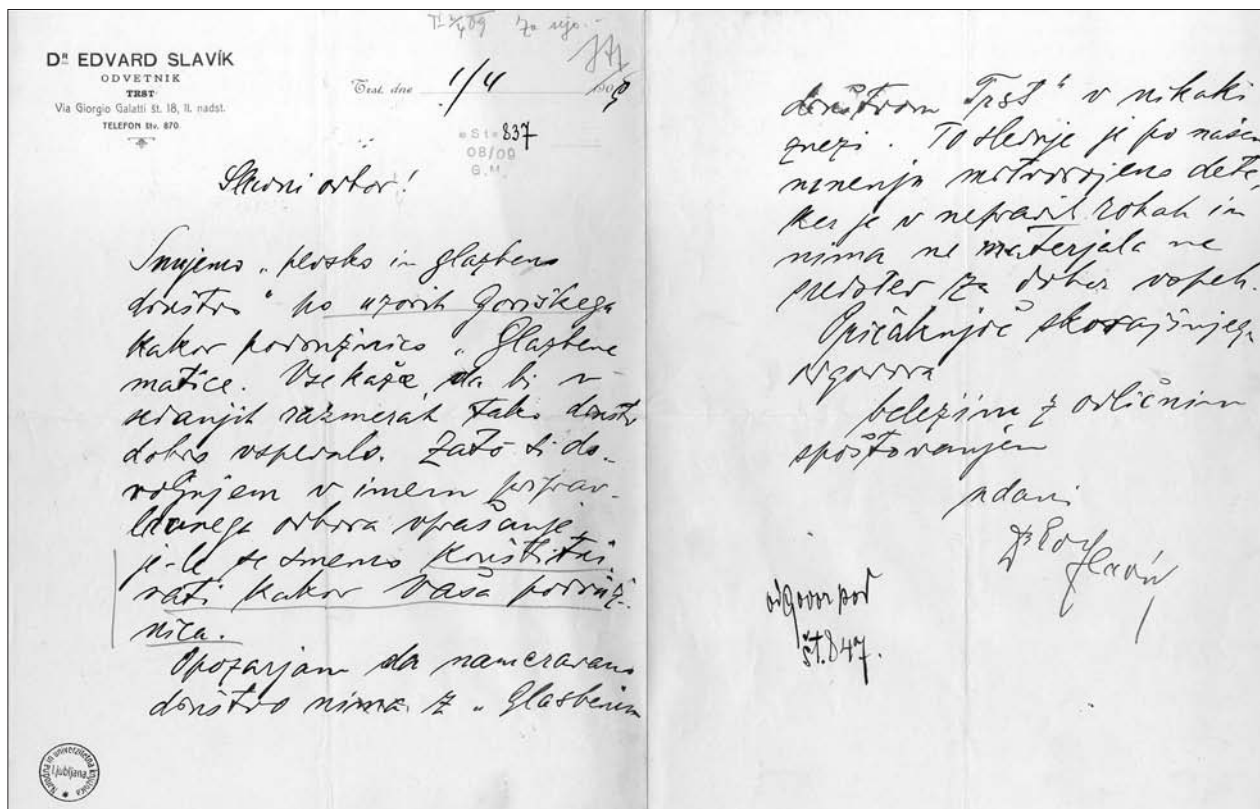 Dr EDVARD SLAVÍK
ODVETNIK
TRST
Via Giorgio Galatti št. 18, II. nadst.
TELEFON štv. 870.
Za sejo
Trst, dne 1/4 1909
Št. 837
08/09
G.M.
Slavni odbor!
Snujemo „pevsko in glazbeno
društvo“ po uzorih Goriškega
kakor podružnico „Glazbene
matice. Vse kaže da bi v
sedanjih razmerah tako društvo
dobro vspevalo. Zato si do-
voljujem v imenu priprav-
ljavnega odbora vprašanje,
je-le se smemo konstitui-
rati kakor Vaša podruž-
nica.
Opozarjam da nameravano
društvo nima z „Glasbenim
društvom Trst“ v nikaki
zvezi. To slednje je po našem
mnenju mrtvorojeno dete,
ker je v nepravih rokah in
nima ne materjala ne
predstev za dober vspeh.
Pričakujoč skorajšnjega
odgovora
beležim z odličnim
spoštovanjem
udani
Dr Slavik
odgovor pod
št. 847.
Narodna in univerzitetna knjižnica
Ljubljana